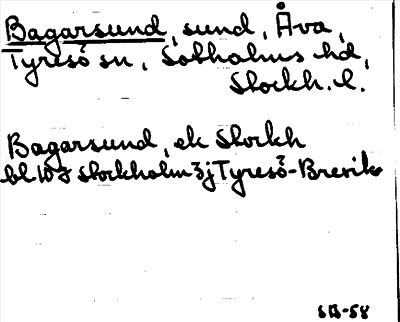 Bagarsund, sund, Åva,
Tyresö sn, Sotholms hd,
Stockh. l.
Bagarsund, ek Stockh
bl 107 Stockholm 3j Tyresö-Brevik
SB-58